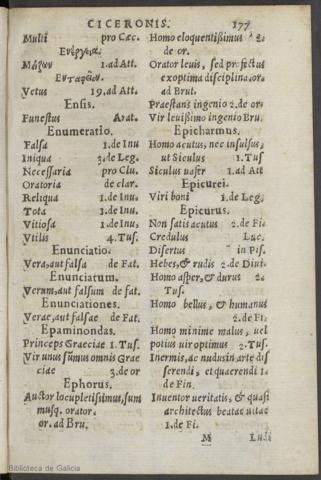 CICERONIS. 177
Multi pro Cæc.
Ἐνέργεια.
1. ad Att.
Vetus 19. ad Att.
Ensis.
Funestus Arat.
Enumeratio.
Falsa 1. de Inu
Iniqua 3. de Leg.
Necessaria pro Clu.
Oratoria de clar.
Reliqua 1. de Inu.
Tota 1. de Inu,
Vitiosa 1. de Inu,
Vtilis 4. Tus.
Enunciatio.
Vera, aut falsa de Fat.
Enunciatum.
Verum, aut falsum de fat.
Enunciationes.
Verae, aut falsae de Fat.
Epaminondas.
Princeps Graeciae 1. Tus.
Vir unus summus omnis Grae
ciae 3. de or
Ephorus.
Auctor locupletissimus, sum
musq. orator.
or. ad Bru.
Homo eloquentissimus 2.
de or.
Orator leuis, sed profectus
ex optima disciplina. or.
ad Brut.
Praestans ingenio 2. de or.
Vir leuissimo ingenio Bru.
Epicharmus.
Homo acutus, nec insulsus,
ut Siculus 1. Tus
Siculus uafer 1. ad Att
Epicurei.
Viri boni 1. de Leg.
Epicurus.
Non satis acutus 2. de Fi.
Credulus Luc.
Disertus in Pis.
Hebes, & rudis 2. de Diui.
Homo asper, & durus 2.
Tus.
Homo bellus, & humanus
2. de Fi.
Homo minime malus, uel
potius uir optimus 2. Tus.
Inermis, ac nudus in arte dis
serendi, et quaerendi 1.
de Fin.
Inuentor ueritatis, & quasi
architectus beatae uitae
1. de Fi.
M Ludi
Biblioteca de Galicia